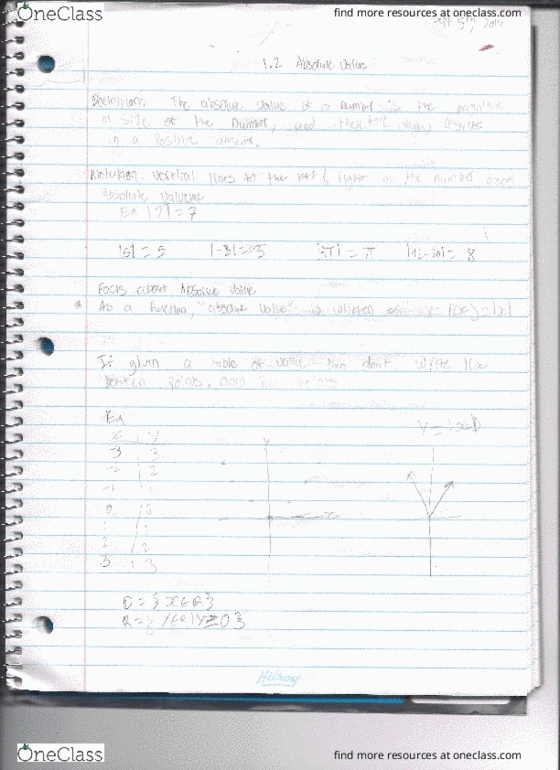 OneClass
find more resources at oneclass.com
1.2 Absolute Value
Definition: The absolute value of a number is the
in size of the number, and therefore always
in a positive answer.
Notation: vertical lines to the left & right of the number
absolute value
Ex |7| = 7
|5| = 5 |-3| = 3 |-π| = π |12-20| = 8
Facts about Absolute Value
* As a function, "absolute value" is written as y = f(x) = |x|
If given a table of value then don't write line
between points, only
Ex
y = |x|
x y
-3 3
-2 2
-1
0 0
1 1
2 2
3 3
y
x
D = {XER}
R = {YER|Y≥0}
Hilroy
OneClass
find more resources at oneclass.com